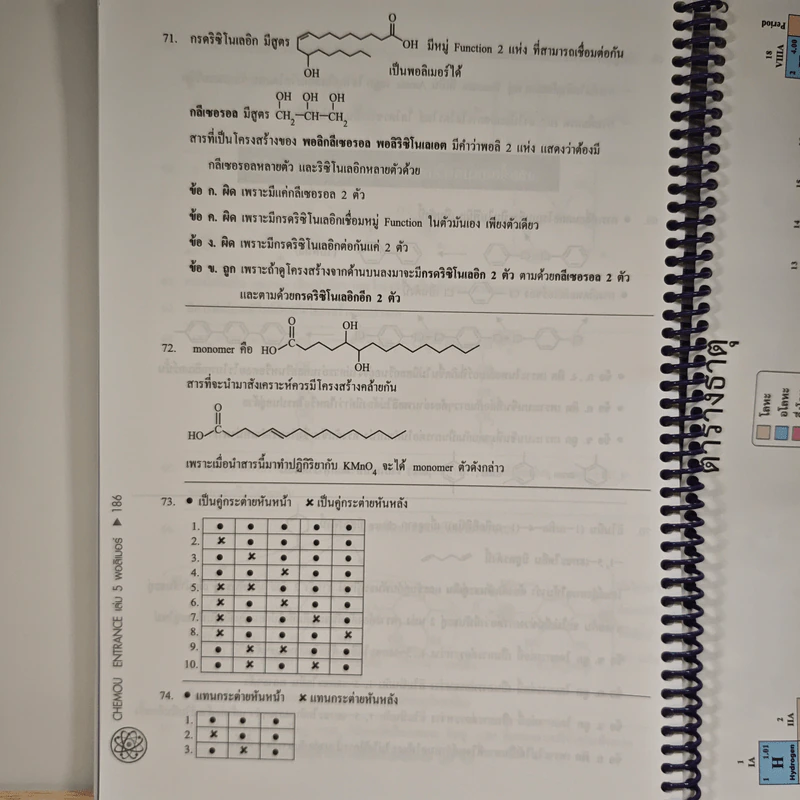 71. กรดริซิโนเลอิก มีสูตร O OH มีหมู่ Function 2 แห่ง ที่สามารถเชื่อมต่อกัน
OH เป็นพอลิเมอร์ได้
OH OH OH
กลีเซอรอล มีสูตร CH2-CH-CH2
สารที่เป็นโครงสร้างของ พอลิกลีเซอรอล พอลิริซิโนเลเอต มีคำว่าพอลิ 2 แห่ง แสดงว่าต้องมี
กลีเซอรอลหลายตัว และริซิโนเลอิกหลายตัวด้วย
ข้อ ก. ผิด เพราะมีแค่กลีเซอรอล 2 ตัว
ข้อ ค. ผิด เพราะมีกรดริซิโนเลอิกเชื่อมหมู่ Function ในตัวมันเอง เพียงตัวเดียว
ข้อ ง. ผิด เพราะมีกรดริซิโนเลอิกต่อกันแค่ 2 ตัว
ข้อ ข. ถูก เพราะถ้าดูโครงสร้างจากด้านบนลงมาจะมีกรดริซิโนเลอิก 2 ตัว ตามด้วยกลีเซอรอล 2 ตัว
และตามด้วยกรดริซิโนเลอิกอีก 2 ตัว
O OH
72. monomer คือ HO C
OH
สารที่จะนำมาสังเคราะห์ควรมีโครงสร้างคล้ายกัน
O
HO C
เพราะเมื่อนำสารนี้มาทำปฏิกิริยากับ KMnO4 จะได้ monomer ตัวดังกล่าว
73. ● เป็นคู่กระต่ายหันหน้า ✖ เป็นคู่กระต่ายหันหลัง
1. ● ● ● ● ●
2. ✖ ● ● ● ●
3. ● ✖ ● ● ●
4. ● ● ✖ ● ●
5. ✖ ✖ ● ● ●
6. ✖ ● ✖ ● ●
7. ✖ ● ● ✖ ●
8. ✖ ● ● ● ✖
9. ● ✖ ✖ ● ●
10. ● ✖ ● ✖ ●
74. ● แทนกระต่ายหันหน้า ✖ แทนกระต่ายหันหลัง
1. ● ● ●
2. ✖ ● ●
3. ● ✖ ●
CHEMOU ENTRANCE เล่ม 5 พอลิเมอร์ ▶ 186
ตารางธาตุ
Period
18
VIIIA
2 4.00
15
14
13
โลหะ
อโลหะ
2
IIA
1
IA
1 1.01
H
Hydrogen